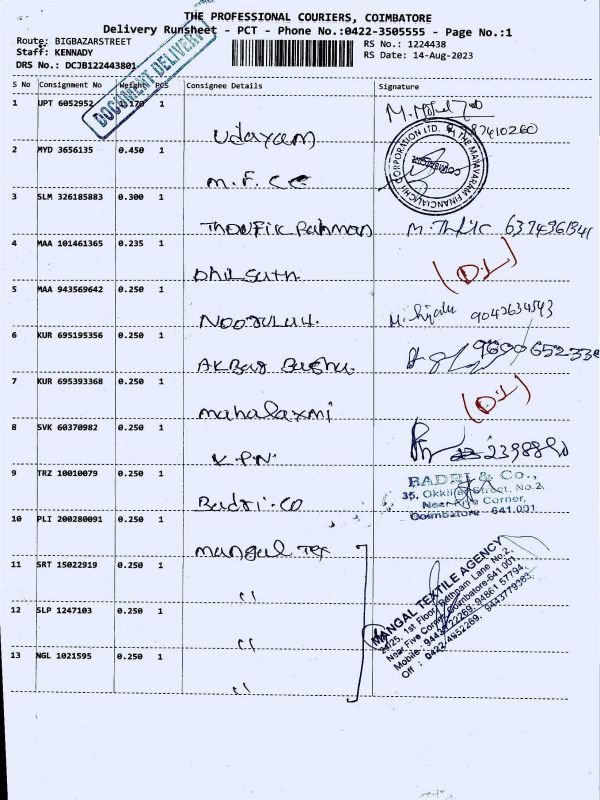 THE PROFESSIONAL COURIERS, COIMBATORE
Delivery Runsheet - PCT - Phone No.:0422-3505555 - Page No.:1
Route: BIGBAZARSTREET
RS No.: 1224438
Staff: KENNADY
RS Date: 14-Aug-2023
DRS No.: DCJB122443801
DOCUMENT DELIVERY
S No Consignment No Weight PCS Consignee Details Signature
1 UPT 6052952 0.170 1 Udayam
2 MYD 3656135 0.450 1 M.F. CE
THE MAYAVARAM FINANCIAL CORPORATION LTD.
COIMBATORE
3 SLM 326185883 0.300 1 Thowfik Rahman 6374361341
4 MAA 101461365 0.235 1 (D.L)
5 MAA 943569642 0.250 1 Noorullah. 9042634543
6 KUR 695195356 0.250 1 Akbar Basha.
7 KUR 695393368 0.250 1 mahalaxmi (D.L)
8 SVK 60370982 0.250 1 K.P.N. 2398890
9 TRZ 10010079 0.250 1 Badri.co
BADRI & Co.,
35, Okkiliar Street, No.2,
Near Five Corner,
Coimbatore - 641.001
10 PLI 200280091 0.250 1 Mangal Tex
11 SRT 15022919 0.250 1 "
12 SLP 1247103 0.250 1 "
13 NGL 1021595 0.250 1 "
MANGAL TEXTILE AGENCY
24/25, 1st Floor, Rathpam Lane No.2,
Near Five Corner, Coimbatore-641 001
Mobile : 22269, 94861 57794,
Off : 0422-4952269, 9443779383,